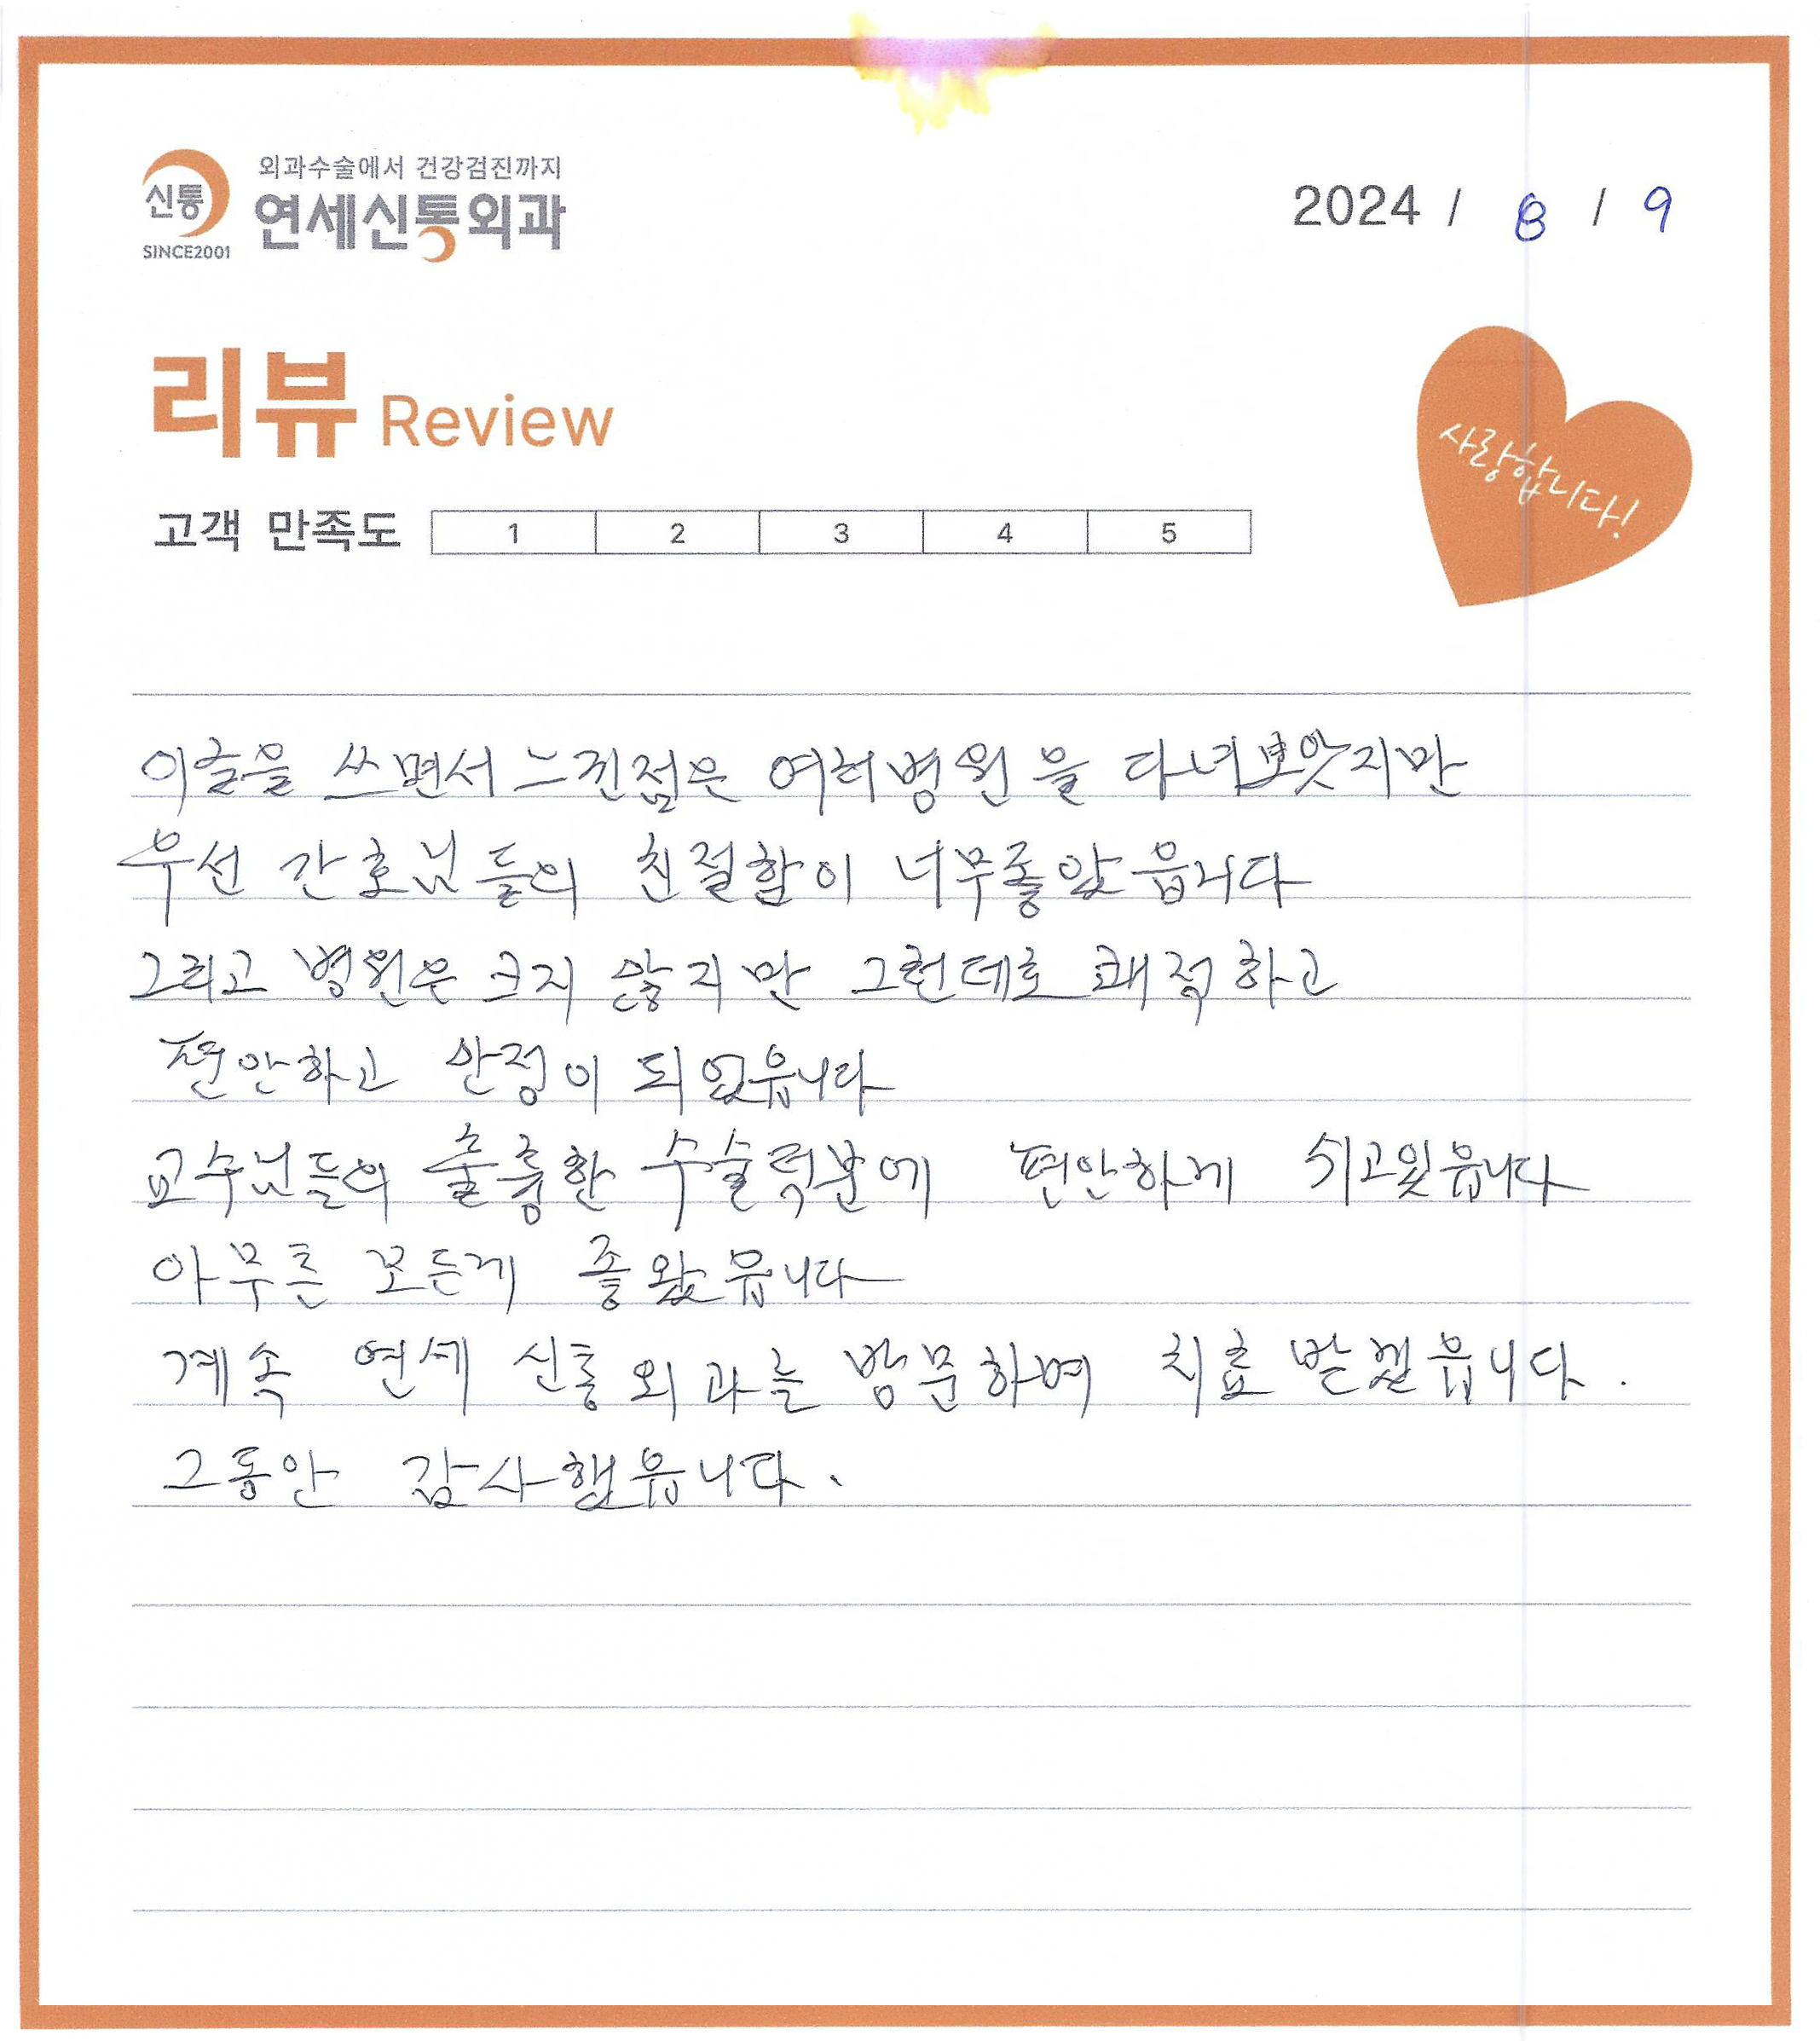 외과수술에서 건강검진까지
신통 연세신통외과
SINCE2001
2024 / 8 / 9
리뷰 Review
사랑합니다!
고객 만족도 1 2 3 4 5
이글을 쓰면서 느낀점은 여러병원을 다녀보앗지만
우선 간호님들의 친절함이 너무좋았읍니다
그리고 병원은 크지 않지만 그런데로 쾌적하고
편안하고 안정이 되었읍니다
교수님들의 출중한 수술력분에 편안하게 쉬고있읍니다
아무튼 모든게 좋왔읍니다
계속 연세 신통외과를 방문하며 치료받겠읍니다.
그동안 감사했읍니다.